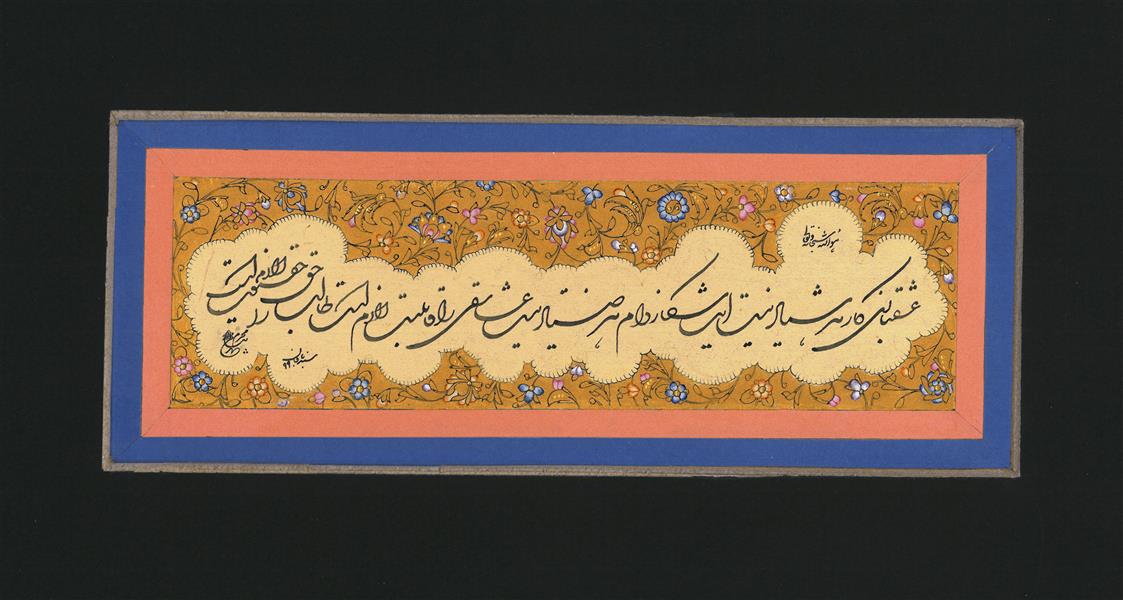 عشقبازی کار هر شیاد نیست این شکار دام هر صیاد نیست
عاشقی را قابلیت لازم است طالب حق را حقیقت لازم است